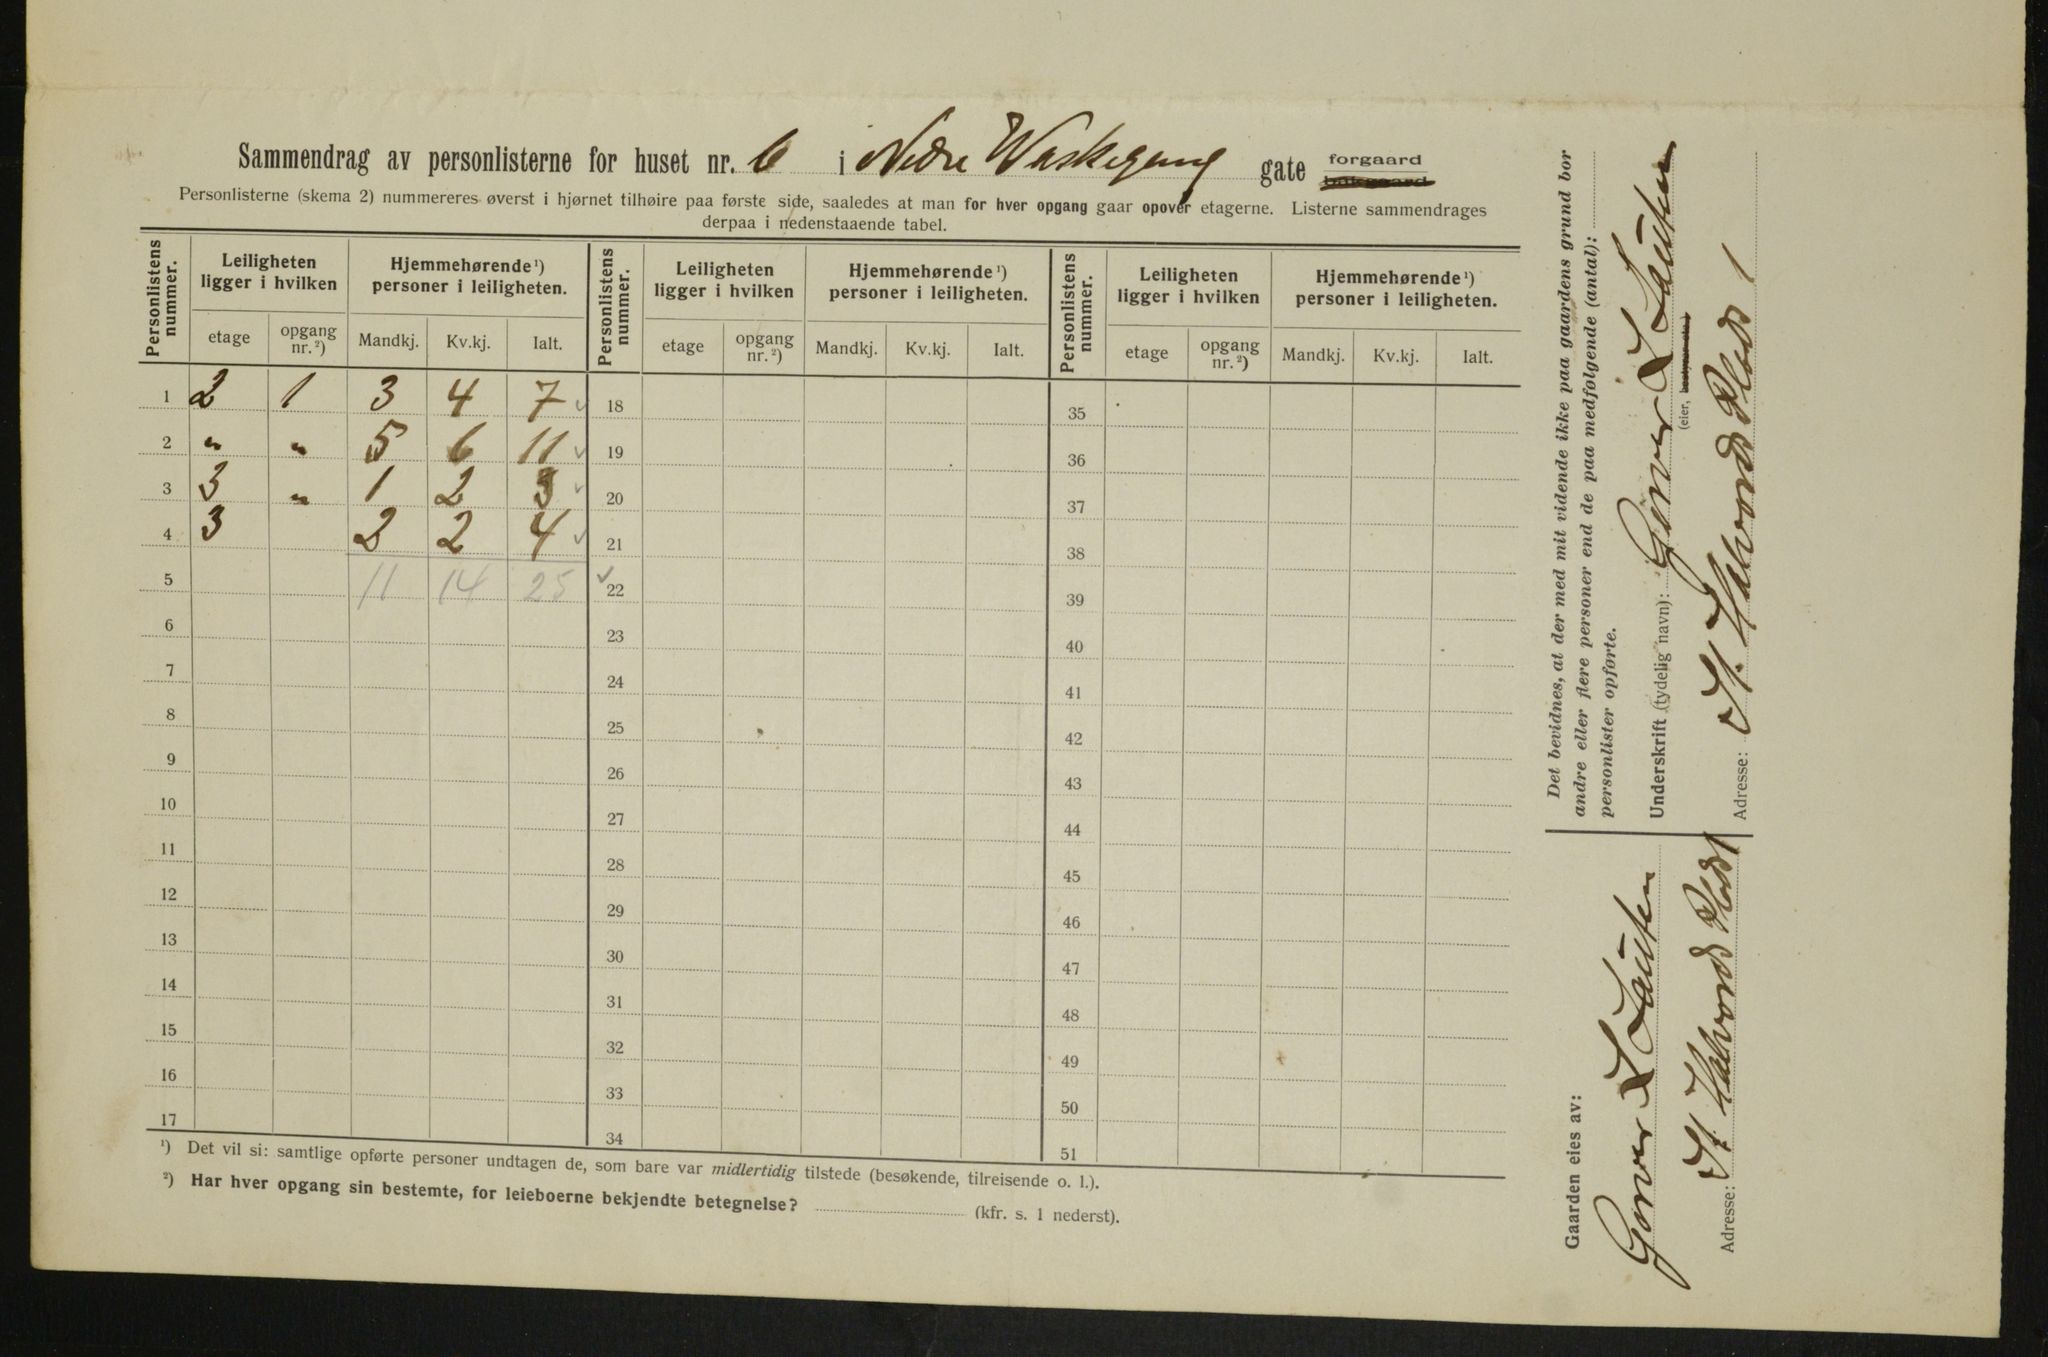 Sammendrag av personlisterne for huset nr. 6 i Nedre Waskegang gate forgaard bakgaard
Personlisterne (skema 2) nummereres øverst i hjørnet tilhøire paa første side, saaledes at man for hver opgang gaar opover etagerne. Listerne sammendrages
derpaa i nedenstaaende tabel.
Personlistens nummer. Leiligheten ligger i hvilken Hjemmehørende ¹) personer i leiligheten. Personlistens nummer. Leiligheten ligger i hvilken Hjemmehørende ¹) personer i leiligheten. Personlistens nummer. Leiligheten ligger i hvilken Hjemmehørende ¹) personer i leiligheten.
etage opgang nr. ²) Mandkj. Kv.kj. Ialt. etage opgang nr. ²) Mandkj. Kv.kj. Ialt. etage opgang nr. ²) Mandkj. Kv.kj. Ialt.
1 2 1 3 4 7 ✓ 18 35
2 " " 5 6 11 ✓ 19 36
3 3 " 1 2 3 ✓ 20 37
4 3 2 2 4 ✓ 21 38
5 11 14 25 ✓ 22 39
6 23 40
7 24 41
8 25 42
9 26 43
10 27 44
11 28 45
12 29 46
13 30 47
14 31 48
15 32 49
16 33 50
17 34 51
¹) Det vil si: samtlige opførte personer undtagen de, som bare var midlertidig tilstede (besøkende, tilreisende o. l.).
²) Har hver opgang sin bestemte, for leieboerne bekjendte betegnelse? (kfr. s. 1 nederst).
Det bevidnes, at der med mit vidende ikke paa gaardens grund bor
andre eller flere personer end de paa medfølgende (antal):
personlister opførte.
Underskrift (tydelig navn):
(eier, bestyrer etc.)
Adresse: St. Halvards Plads 1
Gaarden eies av:
Adresse: St. Halvards Plads 1